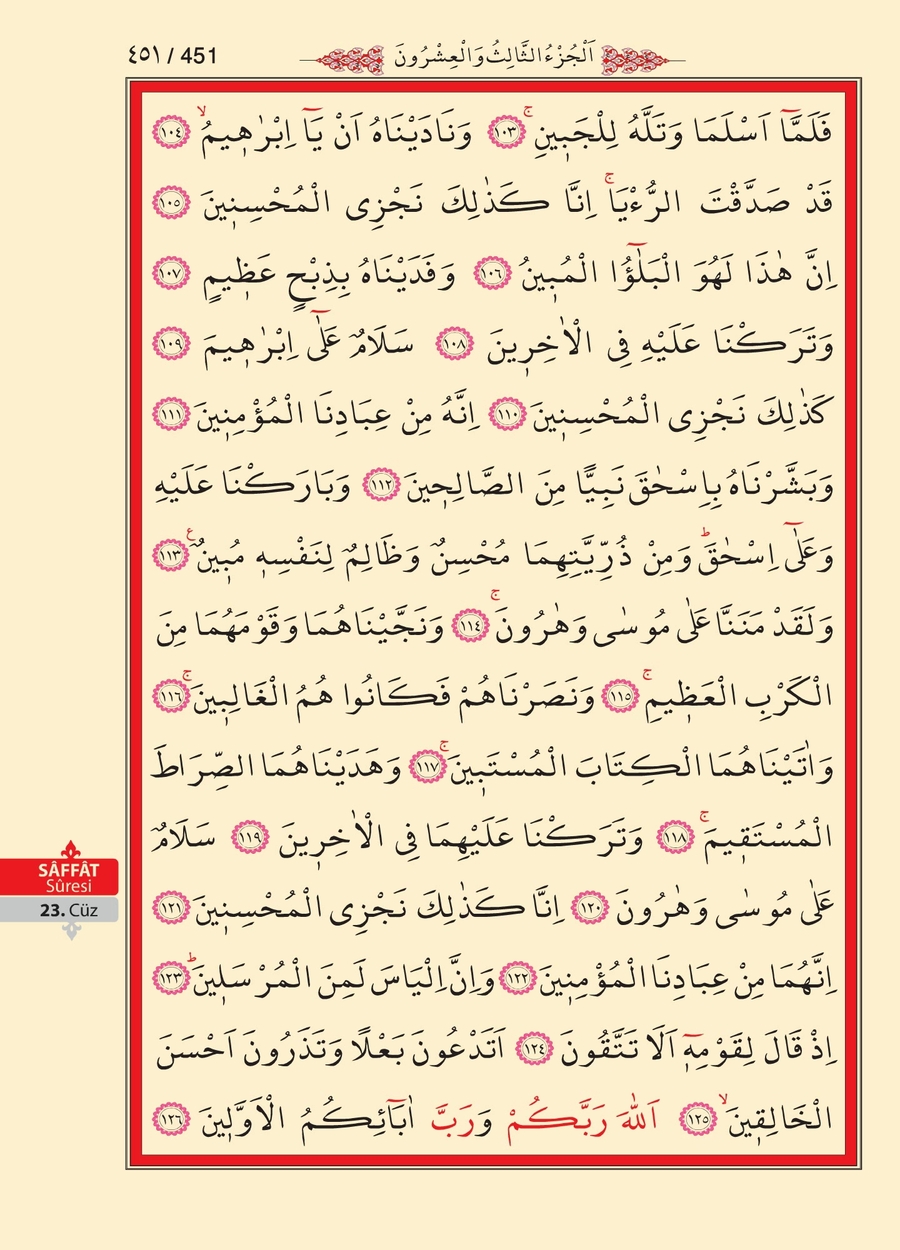 ٤٥١ / 451
اَلْجُزْءُ الثَّالِثُ وَالْعِشْرُونَ
فَلَمَّٓا اَسْلَمَا وَتَلَّهُ لِلْجَب۪ينِۚ ﴿١٠٣﴾ وَنَادَيْنَاهُ اَنْ يَٓا اِبْرٰه۪يمُۙ ﴿١٠٤﴾
قَدْ صَدَّقْتَ الرُّءْيَاۚ اِنَّا كَذٰلِكَ نَجْزِى الْمُحْسِن۪ينَ ﴿١٠٥﴾
اِنَّ هٰذَا لَهُوَ الْبَلٰٓؤُا الْمُب۪ينُ ﴿١٠٦﴾ وَفَدَيْنَاهُ بِذِبْحٍ عَظ۪يمٍ ﴿١٠٧﴾
وَتَرَكْنَا عَلَيْهِ فِى الْاٰخِر۪ينَ ﴿١٠٨﴾ سَلَامٌ عَلٰٓى اِبْرٰه۪يمَ ﴿١٠٩﴾
كَذٰلِكَ نَجْزِى الْمُحْسِن۪ينَ ﴿١١٠﴾ اِنَّهُ مِنْ عِبَادِنَا الْمُؤْمِن۪ينَ ﴿١١١﴾
وَبَشَّرْنَاهُ بِاِسْحٰقَ نَبِيًّا مِنَ الصَّالِح۪ينَ ﴿١١٢﴾ وَبَارَكْنَا عَلَيْهِ
وَعَلٰٓى اِسْحٰقَۜ وَمِنْ ذُرِّيَّتِهِمَا مُحْسِنٌ وَظَالِمٌ لِنَفْسِه۪ مُب۪ينٌ۟ ﴿١١٣﴾
وَلَقَدْ مَنَنَّا عَلٰى مُوسٰى وَهٰرُونَۚ ﴿١١٤﴾ وَنَجَّيْنَاهُمَا وَقَوْمَهُمَا مِنَ
الْكَرْبِ الْعَظ۪يمِۚ ﴿١١٥﴾ وَنَصَرْنَاهُمْ فَكَانُوا هُمُ الْغَالِب۪ينَۚ ﴿١١٦﴾
وَاٰتَيْنَاهُمَا الْكِتَابَ الْمُسْتَب۪ينَۚ ﴿١١٧﴾ وَهَدَيْنَاهُمَا الصِّرَاطَ
الْمُسْتَق۪يمَۚ ﴿١١٨﴾ وَتَرَكْنَا عَلَيْهِمَا فِى الْاٰخِر۪ينَ ﴿١١٩﴾ سَلَامٌ
عَلٰى مُوسٰى وَهٰرُونَ ﴿١٢٠﴾ اِنَّا كَذٰلِكَ نَجْزِى الْمُحْسِن۪ينَ ﴿١٢١﴾
اِنَّهُمَا مِنْ عِبَادِنَا الْمُؤْمِن۪ينَ ﴿١٢٢﴾ وَاِنَّ اِلْيَاسَ لَمِنَ الْمُرْسَل۪ينَۜ ﴿١٢٣﴾
اِذْ قَالَ لِقَوْمِه۪ٓ اَلَا تَتَّقُونَ ﴿١٢٤﴾ اَتَدْعُونَ بَعْلًا وَتَذَرُونَ اَحْسَنَ
الْخَالِق۪ينَۙ ﴿١٢٥﴾ اَللّٰهَ رَبَّكُمْ وَرَبَّ اٰبَٓائِكُمُ الْاَوَّل۪ينَ ﴿١٢٦﴾
SÂFFÂT
Sûresi
23. Cüz